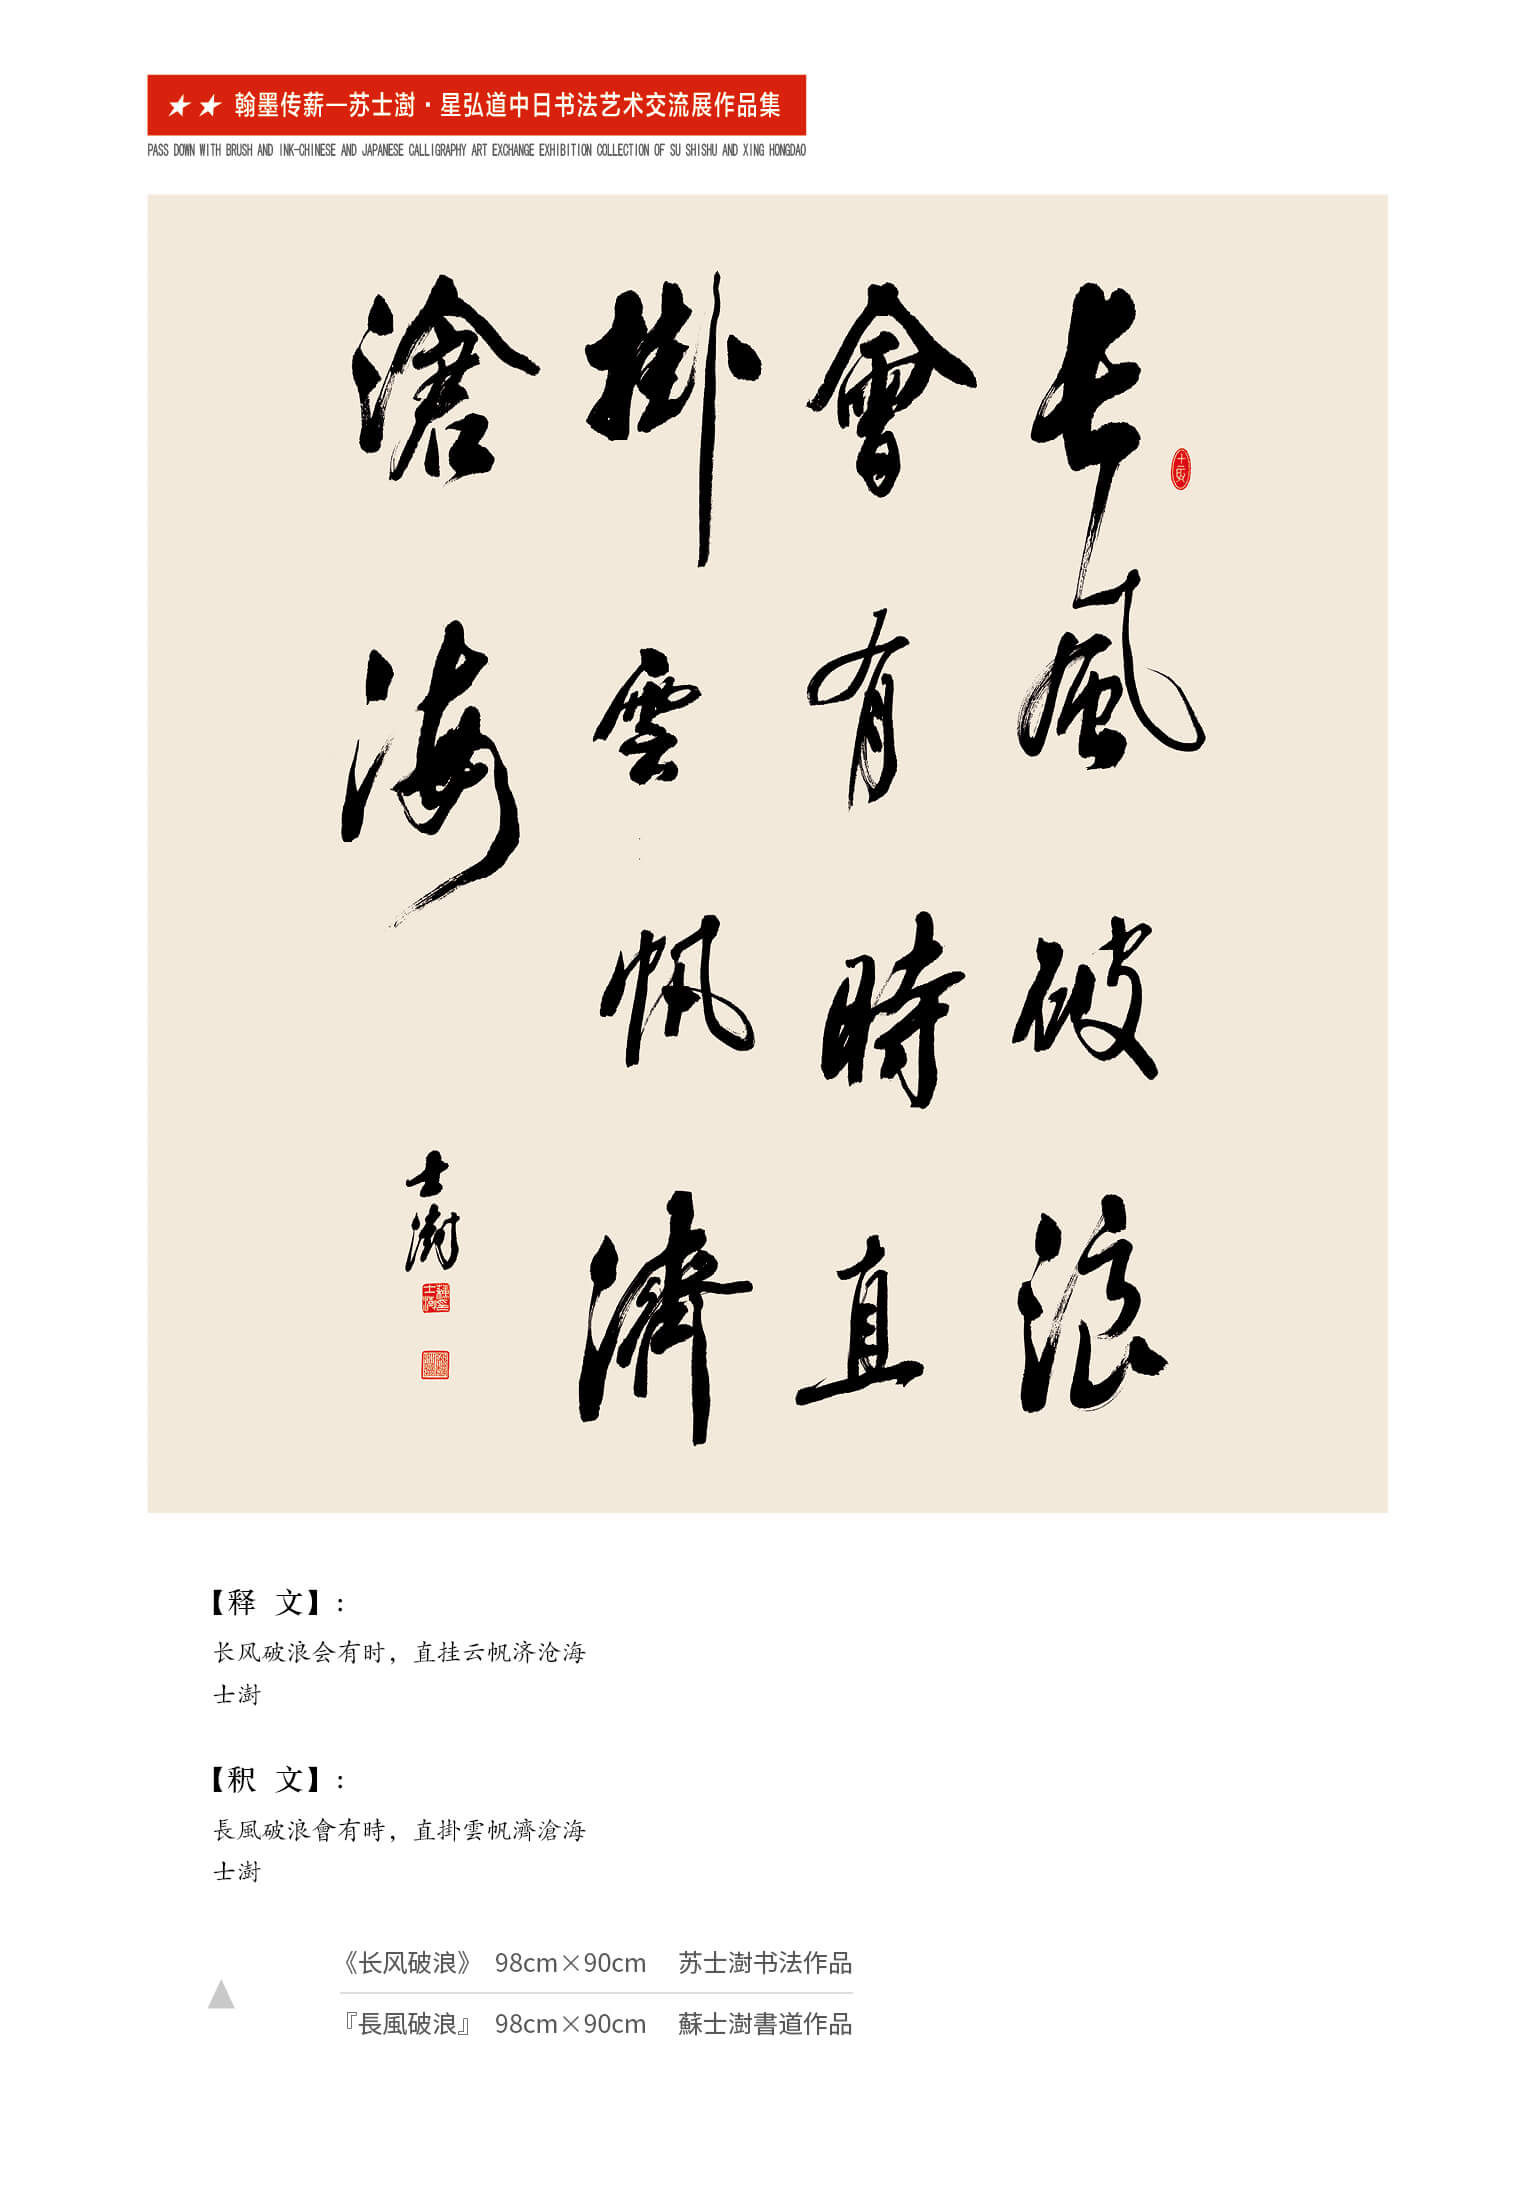 ★ ★ 翰墨传薪—苏士澍·星弘道中日书法艺术交流展作品集
PASS DOWN WITH BRUSH AND INK-CHINESE AND JAPANESE CALLIGRAPHY ART EXCHANGE EXHIBITION COLLECTION OF SU SHISHU AND XING HONGDAO
長風破浪
會有時直
掛雲帆濟
滄海
士澍
【释 文】:
长风破浪会有时，直挂云帆济沧海
士澍
【釈 文】:
長風破浪會有時，直掛雲帆濟滄海
士澍
《长风破浪》 98cm×90cm 苏士澍书法作品
『長風破浪』 98cm×90cm 蘇士澍書道作品